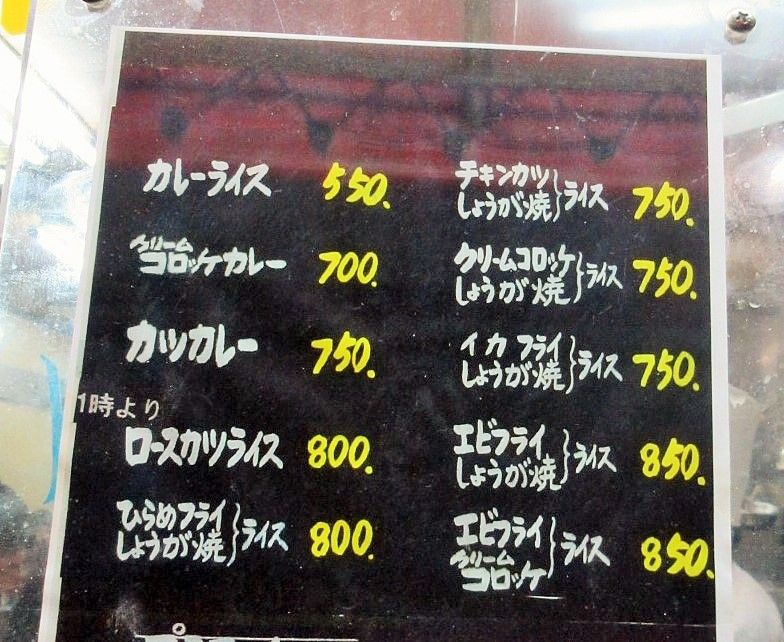 カレーライス 550.
クリーム
コロッケカレー 700.
カツカレー 750.
1時より
ロースカツライス 800.
ひらめフライ
しょうが焼}ライス 800.
チキンカツ
しょうが焼}ライス 750.
クリームコロッケ
しょうが焼}ライス 750.
イカフライ
しょうが焼}ライス 750.
エビフライ
しょうが焼}ライス 850.
エビフライ
クリーム
コロッケ}ライス 850.